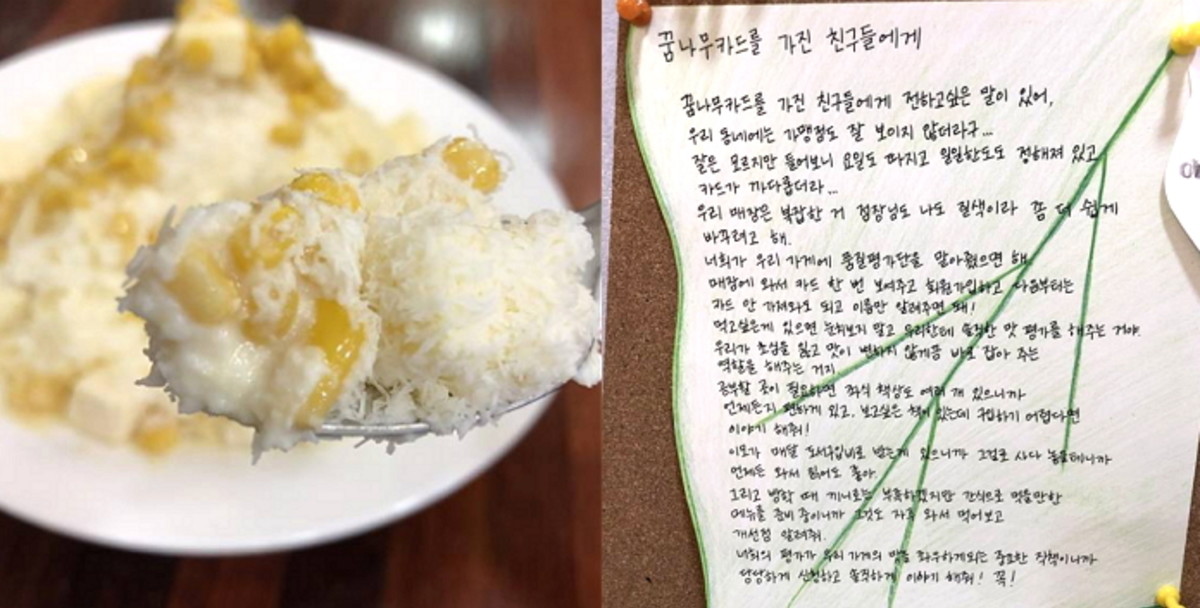 꿈나무카드를 가진 친구들에게
꿈나무카드를 가진 친구들에게 전하고싶은 말이 있어,
우리 동네에는 가맹점도 잘 보이지 않더라구...
잘은 모르지만 들어보니 요일도 따지고 일일한도도 정해져 있고
카드가 까다롭더라...
우리 매장은 복잡한 거 점장님도 나도 질색이라 좀 더 쉽게
바꾸려고 해.
너희가 우리 가게에 품질평가단을 맡아줬으면 해
매장에 와서 카드 한 번 보여주고 회원가입하고 다음부터는
카드 안 가져와도 되고 이름만 알려주면 돼!
먹고싶은게 있으면 눈치보지 말고 우리한테 솔직한 맛 평가를 해주는 거야.
우리가 초심을 잃고 맛이 변하지 않게끔 바로 잡아 주는
역할을 해주는 거지
공부할 곳이 필요하면 좌식 책상도 여러 개 있으니까
언제든지 편하게 있고, 보고싶은 책이 있는데 구입하기 어렵다면
이야기 해줘!
이모가 매달 도서구입비로 받는게 있으니까 그걸로 사다 놓을테니까
언제든 와서 읽어도 좋아.
그리고 방학 때 끼니로는 부족하겠지만 간식으로 먹을만한
메뉴를 준비 중이니까 그것도 자주 와서 먹어보고
개선점 알려줘.
너희의 평가가 우리 가게의 맛을 좌우하게되는 중요한 직책이니까
당당하게 신청하고 솔직하게 이야기 해줘! 꼭!